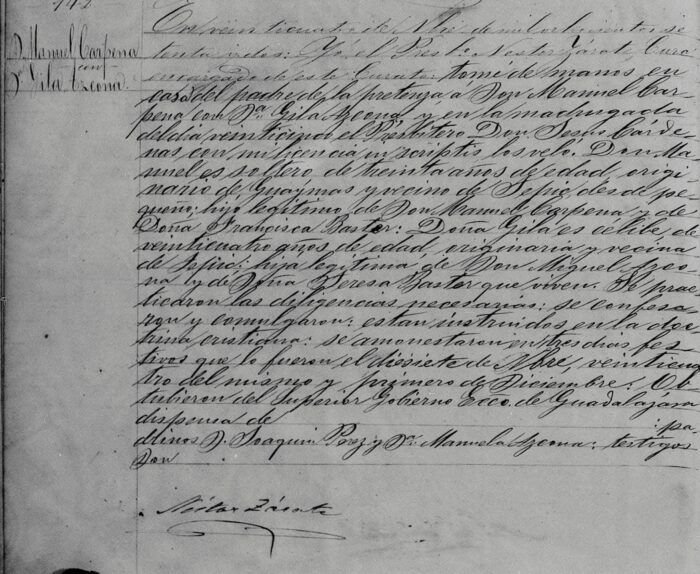 142
En veinticuatro de Nbre de mil ochocientos se
D. Manuel Carpena
con
Da. Gila Azcona.
tenta i dos: Yó, el Presbo. Nestor Zárate Cura
encargado de este Curato; tomé de manos en
casa del padre de la pretenza á Don Manuel Car-
pena con Da. Gila Azcona, y en la madrugada
del dia veinticinco el Presbitero Don Jesus Cárde-
nas con mi licencia in scriptis los veló. Don Ma-
nuel es soltero de treinta años de edad, origi-
nario de Guaymas y vecino de Tepic desde pe-
queño; hijo legitimo de Don Manuel Carpena y de
Doña Francisca Baster: Doña Gila es celibe, de
veinticuatro años de edad, originaria y vecina
de Tepic; hija legitima de Don Miguel Azco-
na y de Doña Teresa Baster que viven. Se prac-
ticaron las diligencias necesarias: se confesa-
ron y comulgaron: estan instruidos en la doc-
trina cristiana: se amonestaron en tres dias fes-
tivos que lo fueron el diesiete de Nbre, veinticua-
tro del mismo y primero de Diciembre. Ob-
tubieron del Superior Gobierno Ecco. de Guadalajara
dispensa de pa
drinos D. Joaquin Perez y Da. Manuela Azcona: testigos
Don
Nestor Zárate